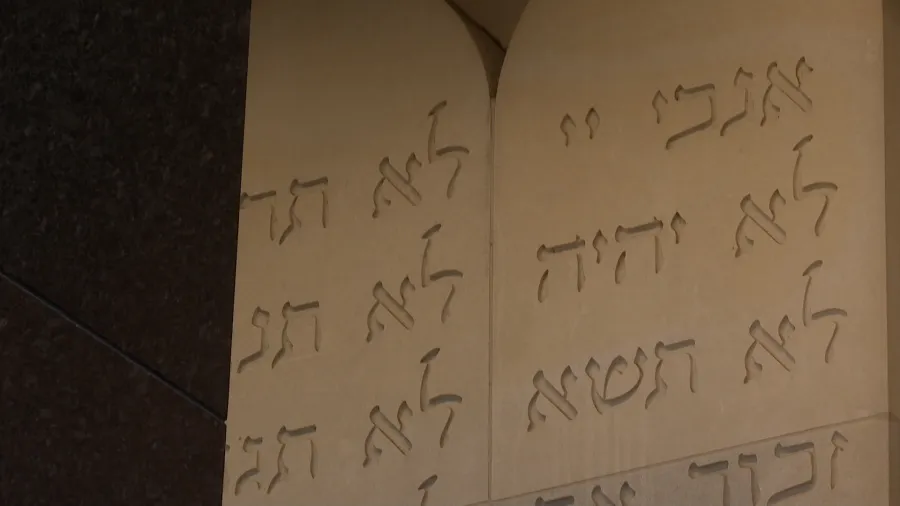 אנכי יי
לא יהיה
לא תשא
זכור את
לא תר
לא תנ
לא תג